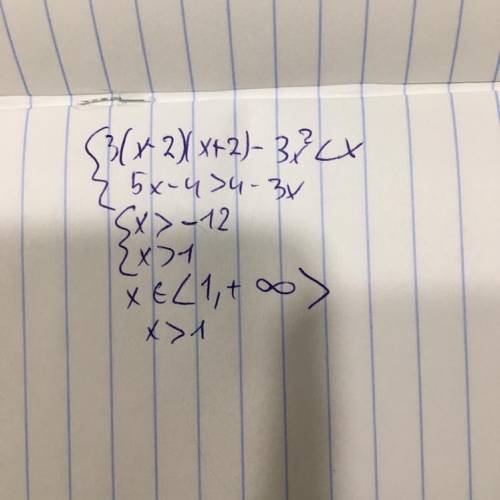 {3(x-2)(x+2)-3x²<x
{5x-4>4-3x
{x>-12
{x>1
x∈<1,+∞>
x>1